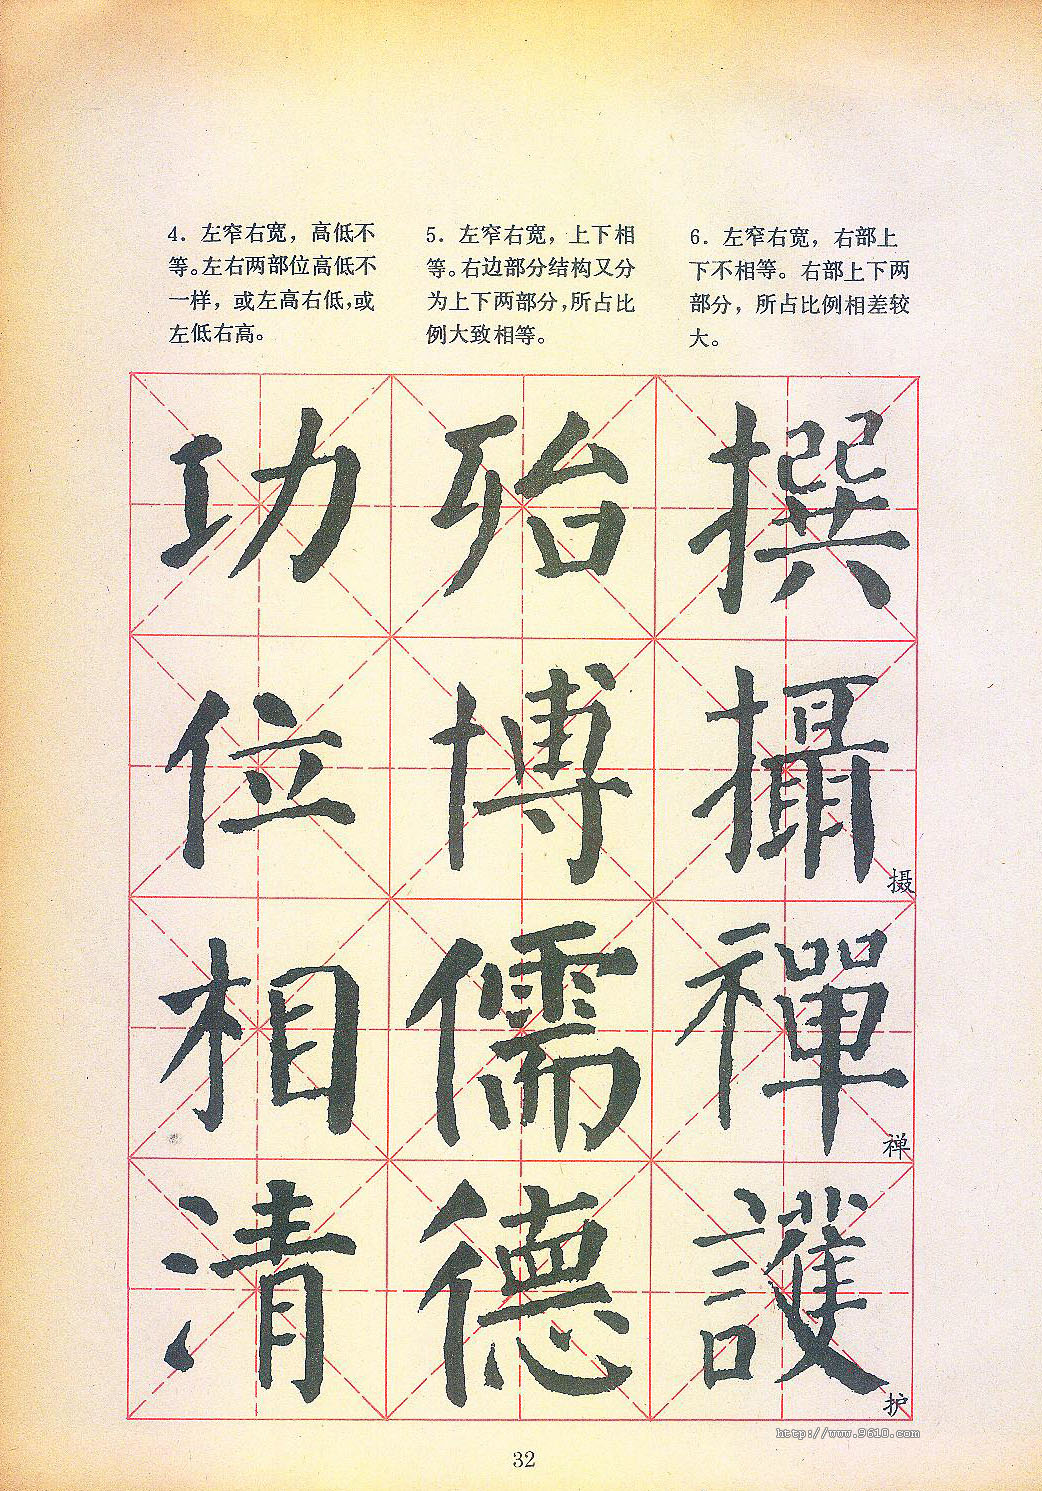 4. 左窄右宽，高低不
等。左右两部位高低不
一样，或左高右低，或
左低右高。
5. 左窄右宽，上下相
等。右边部分结构又分
为上下两部分，所占比
例大致相等。
6. 左窄右宽，右部上
下不相等。右部上下两
部分，所占比例相差较
大。
功 殆 撰
位 博 攝
摄
相 儒 禪
禅
清 德 護
护
http://www.9610.com
32